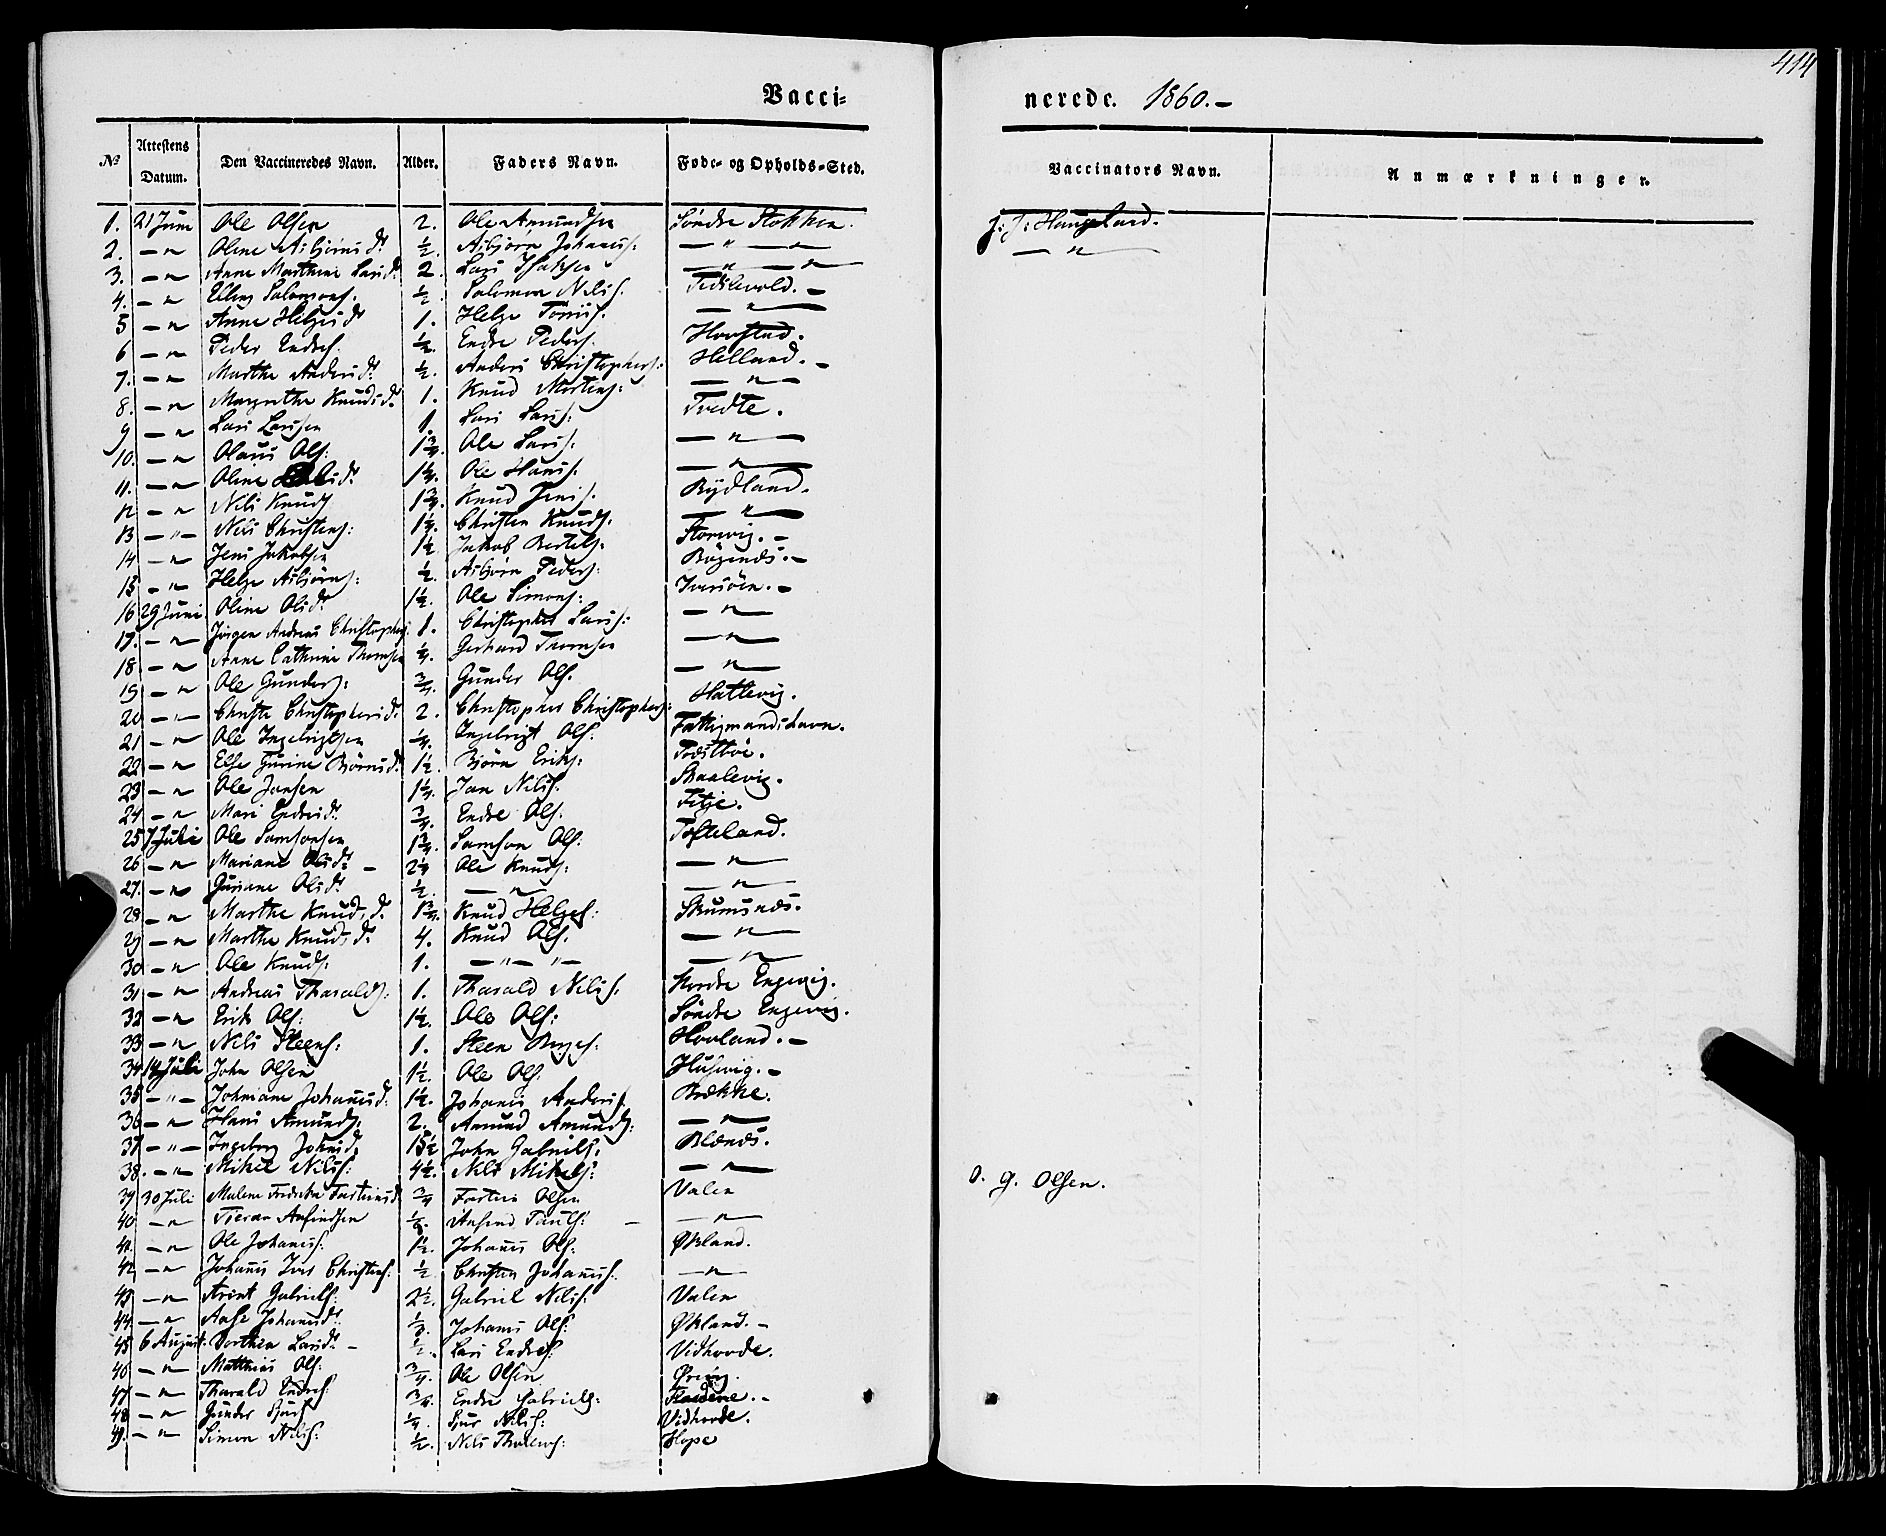 414
Vacci-
nerede. 1860.-
№ Attestens Datum. Den Vaccineredes Navn. Alder. Faders Navn. Føde- og Opholds-Sted. Vaccinators Navn. Anmærkninger.
1. 21 Juni Ole Olsen 2. Ole Amundsen Søndre Stokken. J. J. Haugland.
2. — " Oline Asbjørnsd. ½. Asbjørn Johannes: — " — — " —
3. — " Anne Marthine Larsd. 2. Lars — " — "
4. — " Elling Salomons. ½. Salomon Nils.
5 — " Anne Helgesd. 1. Helge Tønnes. "
6 — " Peder Endres. ½. Endre Peders.
7. — " Marthe Andersd. ½. Anders Christophers: Helland. -
8. — " Margrethe Knudsd. 1. Knud Mortens: — " —
9 — " Lars Larsen 1. Lars Lars: Tvedte.
10. — " Olaus Ols: 1¾. Ole Lars: — " —
11. — " Oline 1¼. Ole Hans: — " —
12 — " Nils Knuds 1¾. Knud Jens. Rydland.
13 — " — Nils Christens: 1¼. Christen Knuds. — " —
14 — " Jens Jakobsen 1½ Jakob Bertels. Storvig. -
15 — " Helge Asbjørns: ½. Asbjørn Peders: Bøgenes. -
16 29 Juni Oline Olsd. 1½. Ole Simons: Iversøen. -
17. — " Jørgen Andreas Christophers. 1. Christopher Lars: — " —
18. — " Anne Cathrine Thomsen ¼. Gerhard Thomsen — " —
19 — " Ole Gunders: ¾. Gunder Ols. — " —
20 — " — Christe Christophersd. 2. Christopher Christophers: Hattevig.
21 — " Ole Ingebrigtsen ¼. Ingebrigt Ols. Fattigmandshavn.
22 — " Else Gurine Bjørnsd. 1½. Bjørn Eriks:
23 — " Ole Jansen 1¼. Jan Nils. Skaalevig.
24 — " Mari Endresd. ¾. Endre Ols. Fitje.
25 7 Juli Ole Samsonsen 1¾. Samson Ols. Tofteland.
26 — " Mariane Olsd. - 2¼ Ole Knuds: — " —
27. — " Guriane Olsd. ½. — " — — " —
28. — " Marthe Knudsd. 1¾. Knud Helges: Skumsnes.
29 — " Marthe Knudsd. 4. Knud Ols. — " —
30 — " Ole Knuds: 1. — " — " — — " —
31 — " Andreas Tharalds: 1. Tharald Nils. Nordre Engevig.
32 — " Erik Ols: 1½. Ole Ols: Søndre Engevig.
33 — " Nils Steens: 1. Steen Hovland. -
34 14 Juli John Olsen 1½. Ole Ols. Husvig. -
35 — " — Johniane Johannesd. 1½. Johannes Anders. Brekke.
36 — " Hans Amunds. 2. Amund Amunds: — " —
37 — " — Ingeborg Johnsd. 15½ John Gabriels.
38. — " Mikel Nils: 4½. Nils Mikels: — " —
39 30 Juli Malene Fredrikke ¾ Olsen Valen O. G. Olsen.
40 — " - — " —
41. — " Ole Johannes. 1½. Johannes Ols: Økland.
42 — " Johannes Iver Christens: ½ Christen Johannes. — " —
43 — " Arent Gabriels: 2½. Gabriel Nils: Valen
44 — " Aase Johannesd. ½. Johannes Ols: Økland. -
45 6 August. Dorthea Larsd. - ½. Lars Endres: Vidhovde.
46 — " Matthias Ols: ¾. Ole Olsen
47 — " Tharald Endres: ¾. Endre Gabriels:
48 — " Gunder ¼. Nils: Vidhovde.
49. — " Simon Nils: ½. Nils Hope